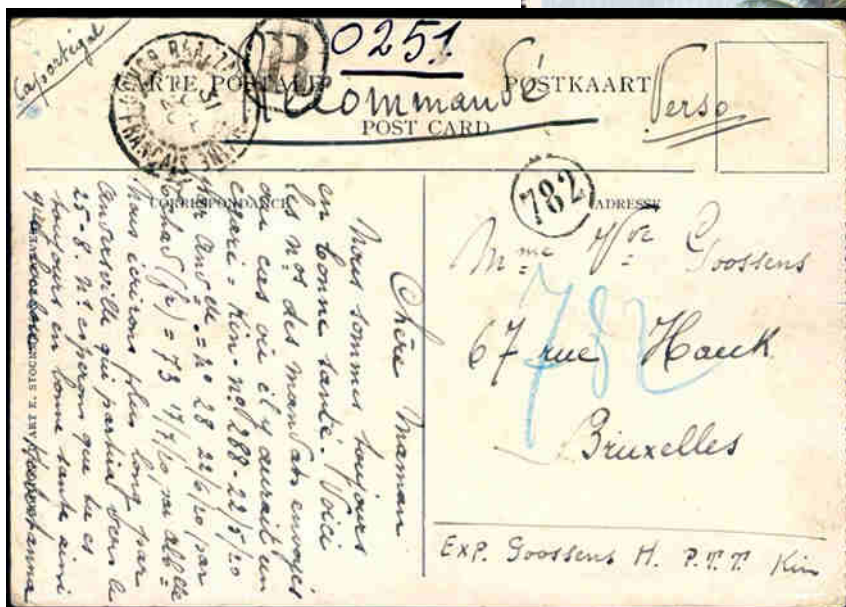 Caportégal
R
0251
CARTE POSTALE POSTKAART
Recommandé
POST CARD
Verso
CORRESPONDANCE
ADRESSE
782
Mme Vve Goossens
782
67 rue Hauk
Bruxelles
Exp. Goossens H. P.T.T. Kin
Chère Maman
Nous sommes toujours
en bonne santé. Voici
les nos des mandats envoyés
au cas où il y aurait un
égaré = Kin. no 288 - 22/5/20
= no 28 22/6/20 par
= 73 17/7/20 par
Nous écrirons plus long par
Anversville qui partira vers le
25-8. Ns espérons que tu es
toujours en bonne santé ainsi
que